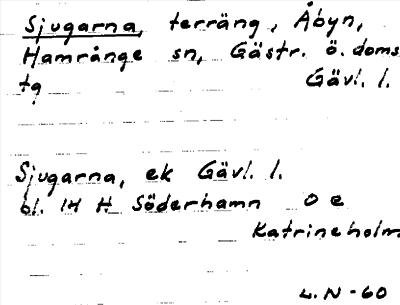 Sjugarna, terräng, Åbyn,
Hamrånge sn, Gästr. ö. doms
tg Gävl. l.
Sjugarna, ek Gävl. l.
bl. 1H H Söderhamn O e
Katrineholm
L.N-60